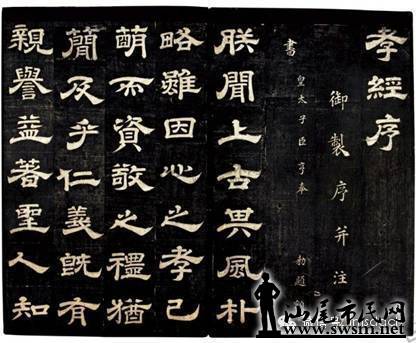 孝經序
御製序并注
皇太子臣亨奉 勑題
書
朕聞上古其風朴
略雖因心之孝已
萌而資敬之禮猶
簡及乎仁義既有
親譽益著聖人知
汕尾市民网
www.swsm.net